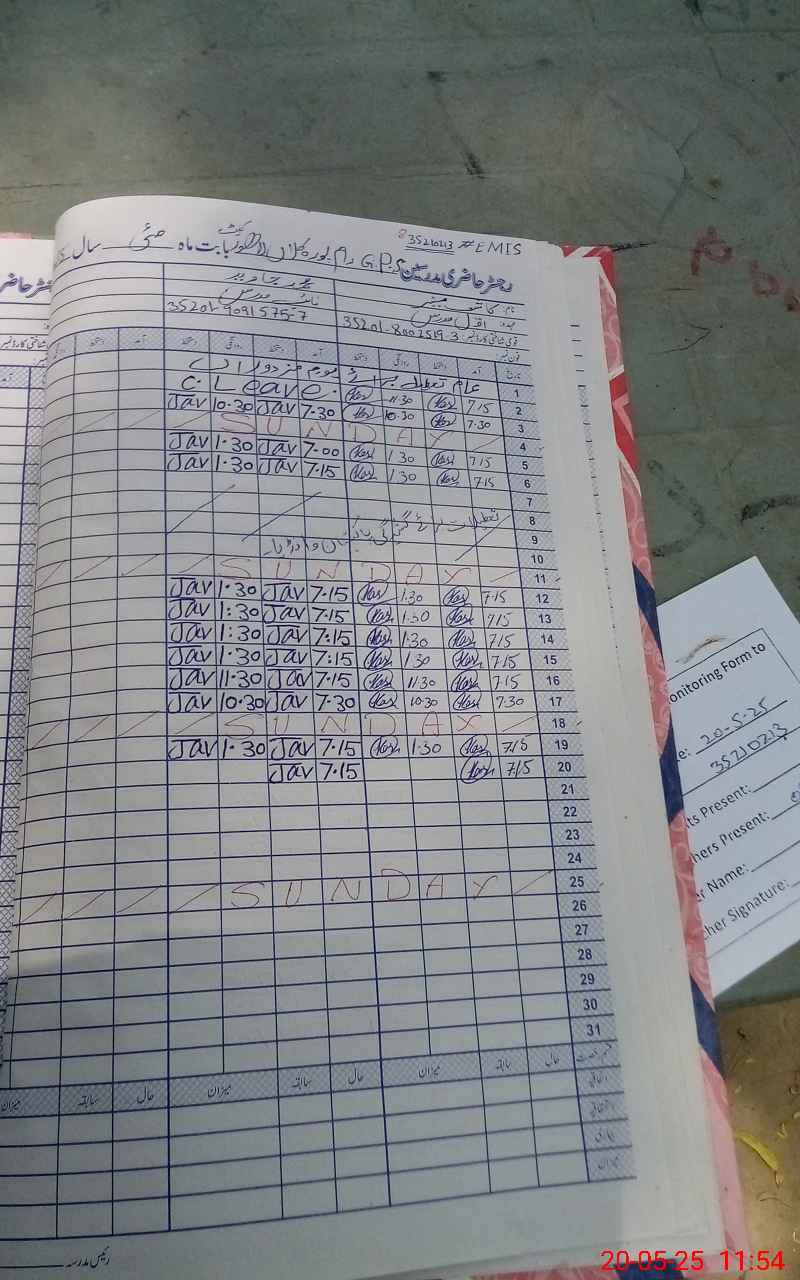 35210213 # EMIS
رجسٹر حاضری مدرسین G.P.S رام پورہ کلاں لاہور کینٹ بابت ماہ مئی سال
نام: کاشف منیر
عہدہ: اول مدرس نائب مدرس
قومی شناختی کارڈ نمبر: 35201-8002519-3 35201-9091575-7
فون نمبر:
تاریخ آمد دستخط روانگی دستخط آمد دستخط روانگی دستخط
1 عام تعطیل برائے یوم مزدوراں
2 7.15 11.30 C. Leave.
3 7.30 10.30 7.30 Jav 10.30 Jav
4 SUNDAY
5 7.15 1.30 7.00 Jav 1.30 Jav
6 7.15 1.30 7.15 Jav 1.30 Jav
7
8 تعطیلات برائے
9
10
11 SUNDAY
12 7.15 1.30 7.15 Jav 1.30 Jav
13 7.15 1.30 7.15 Jav 1:30 Jav
14 7.15 1.30 7:15 Jav 1:30 Jav
15 7.15 1.30 7:15 Jav 1.30 Jav
16 7.15 11.30 7.15 Jav 11.30 Jav
17 7.30 10.30 7.30 Jav 10.30 Jav
18 SUNDAY
19 7.15 1.30 7.15 Jav 1.30 Jav
20 7.15 7.15 Jav
21
22
23
24
25 SUNDAY
26
27
28
29
30
31
قسم رخصت حال سابقہ میزان حال سابقہ میزان حال سابقہ میزان
اتفاقیہ
بیماری
میزان
رئیس مدرسہ
onitoring Form to
e: 20-5-25
35210213
ts Present:
hers Present:
er Name:
cher Signature:
20-05-25 11:54